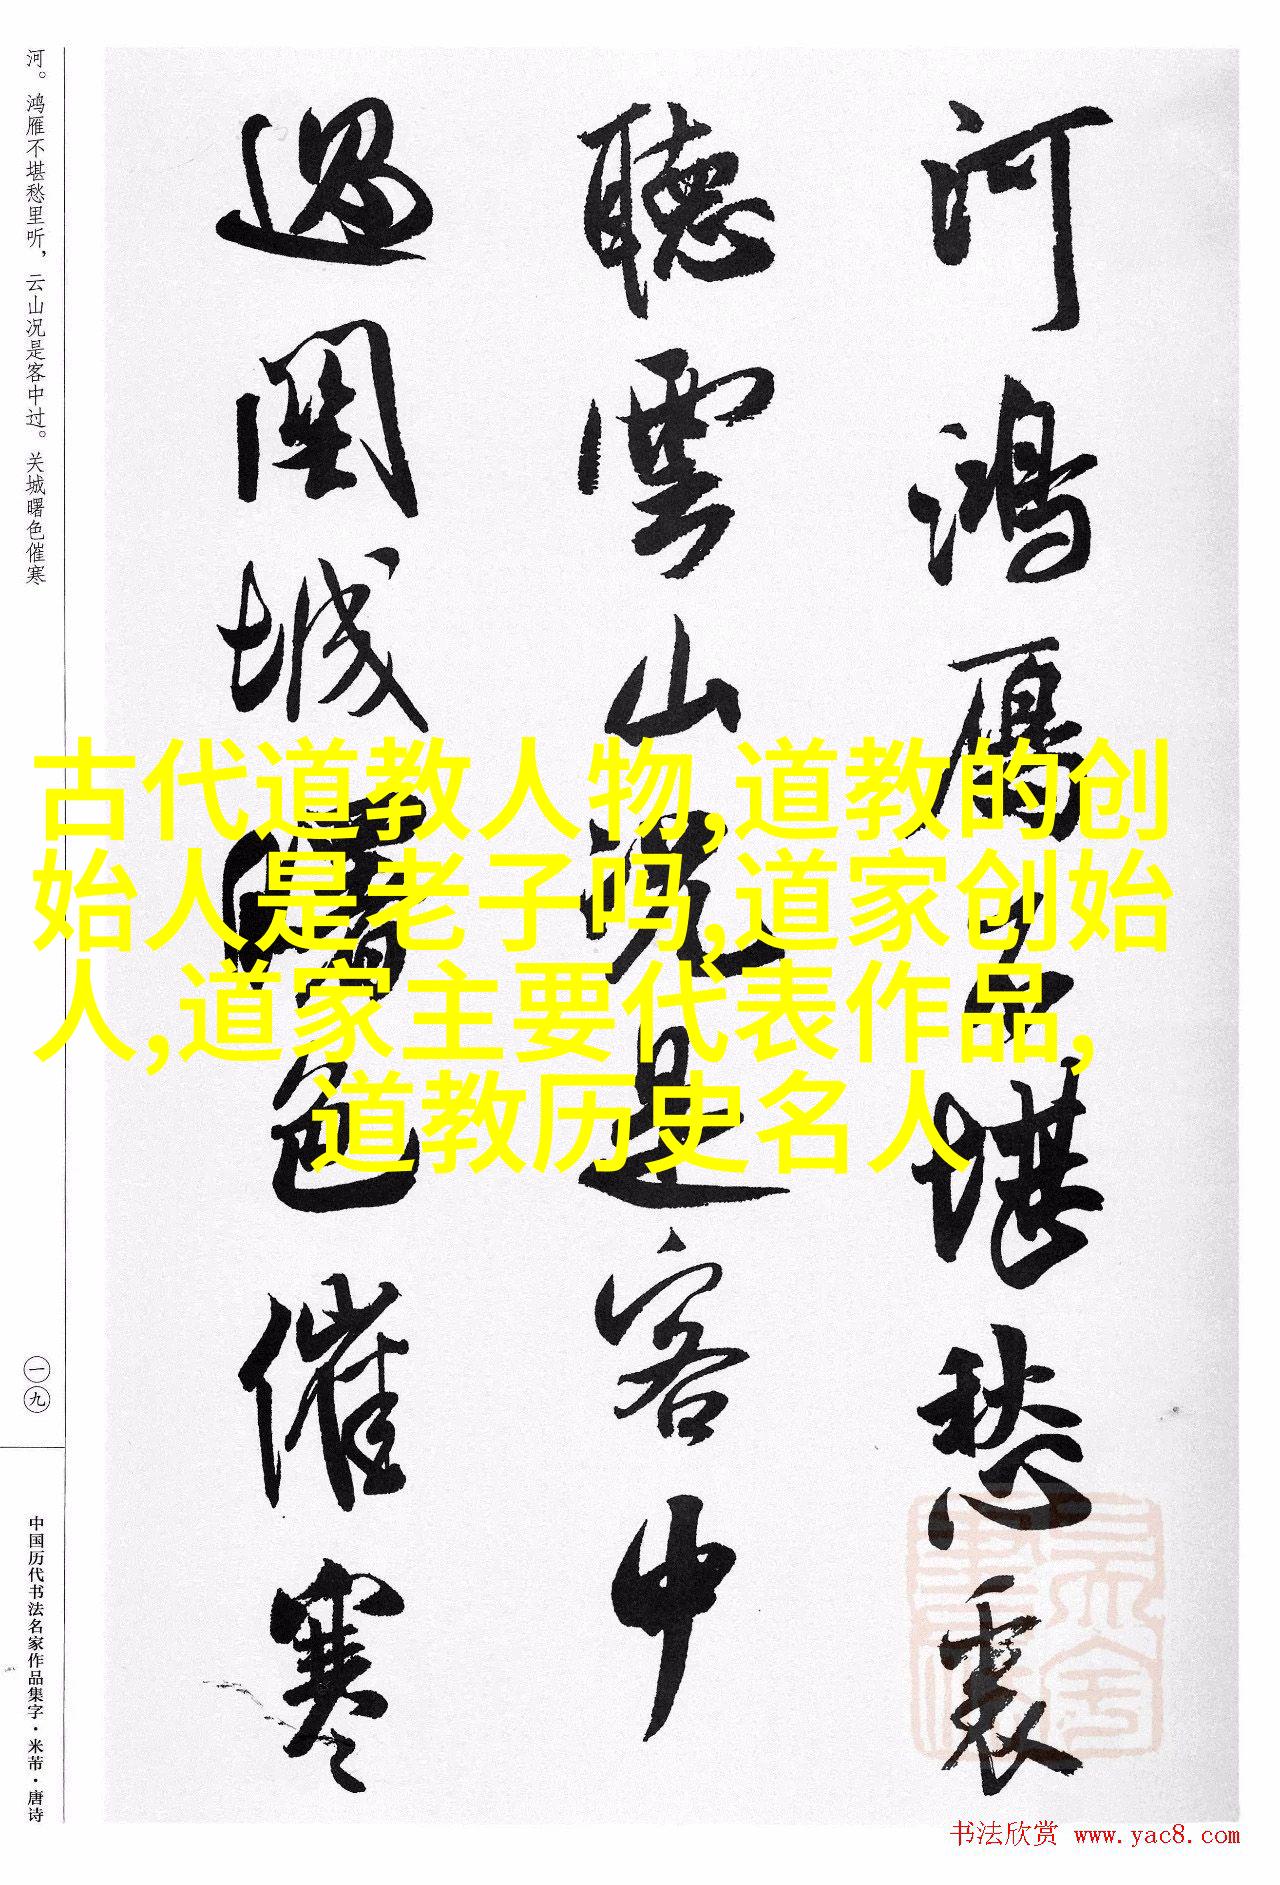 河。鸿雁不堪愁里听，云山况是客中过。关城曙色催寒
河鴻雁不堪愁裏
聽雲山況是客中
過関城曙色催寒
古代道教人物,道教的创
始人是老子吗,道家创始
人,道家主要代表作品,
道教历史名人
一九
中国历代书法名家作品集字·米芾·唐诗
书法欣赏 www.yac8.com